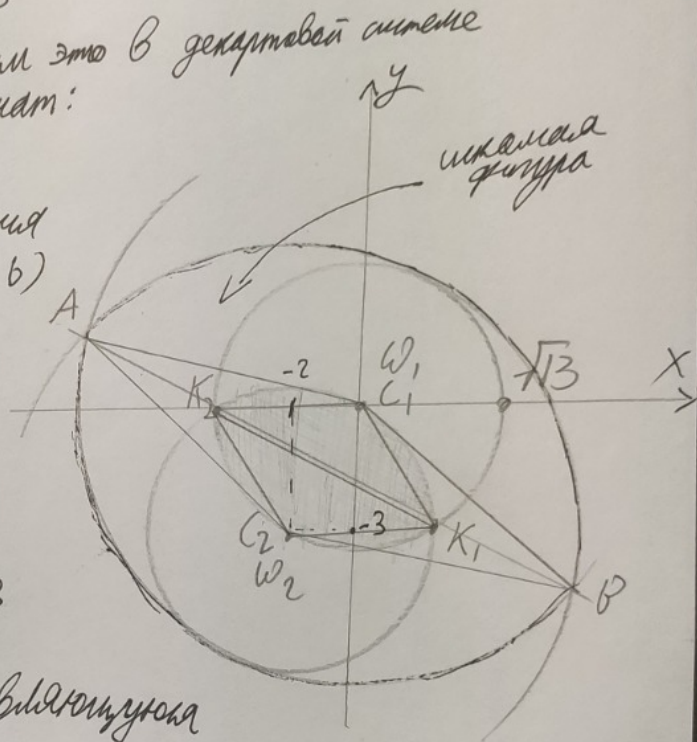 это в декартовой системе
y
искомая
фигура
b)
A
-2
ω₁
√13
X
K₂
C₁
C₂
-3
K₁
ω₂
B